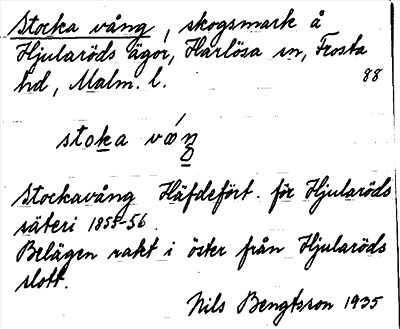 Stocka vång, skogsmark å
Hjularöds ägor, Harlösa sn, Frosta
hd, Malm. l. 88
Stockavång Häfdeført. för Hjularöds
säteri 1855-56.
Belägen rakt i öster från Hjularöds
slott.
Nils Bengtsson 1935